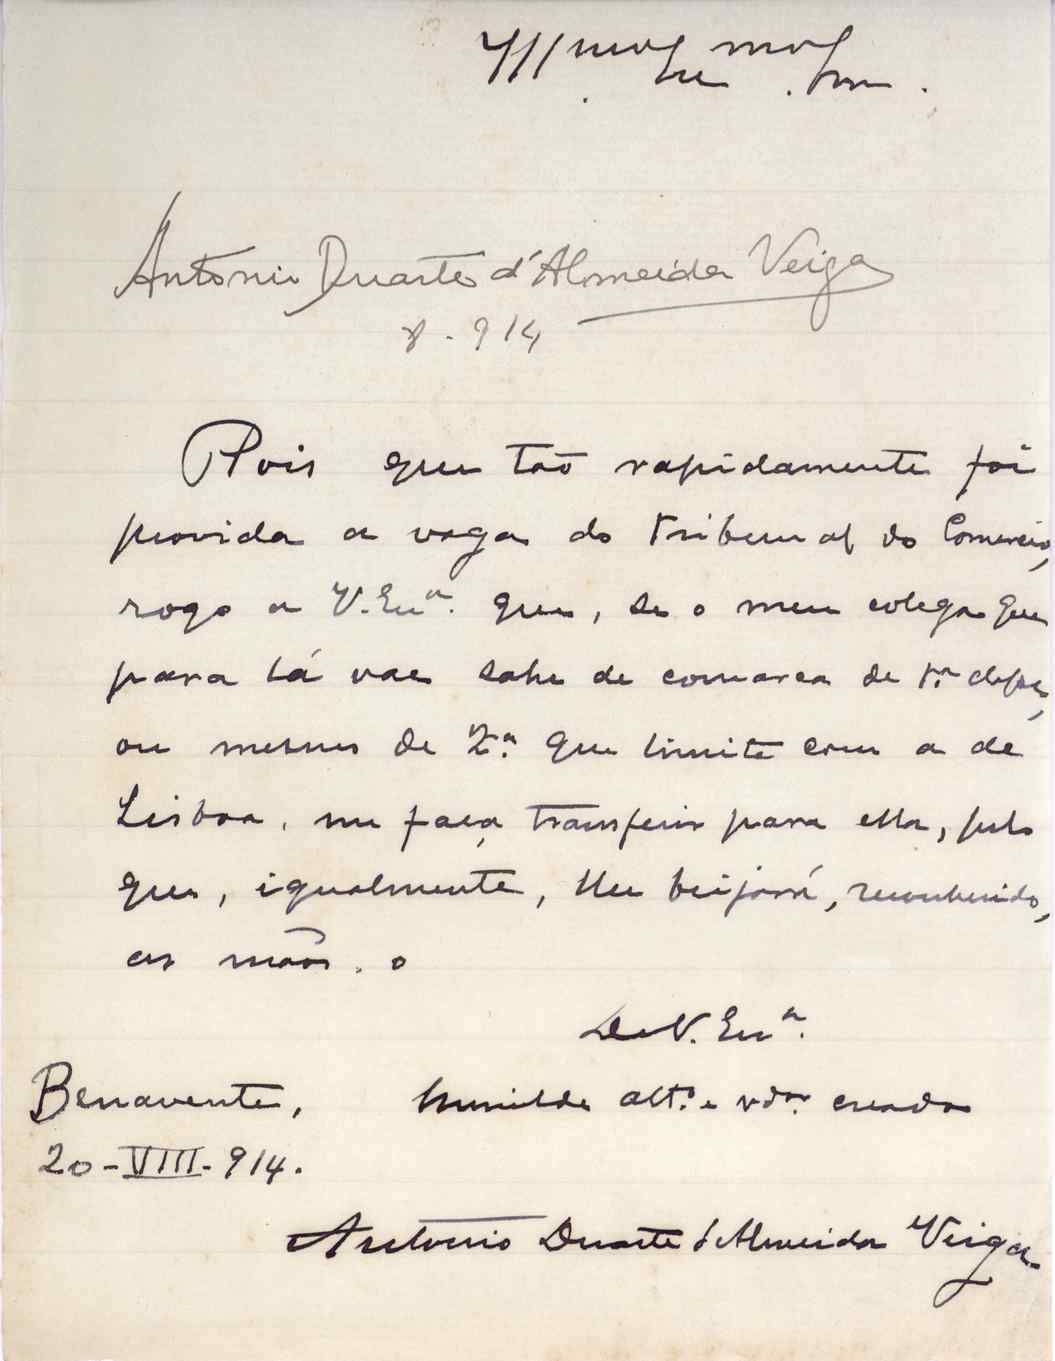 António Duarte d'Almeida Veiga
8 . 914
Pois que tão rapidamente foi
provida a vaga do Tribunal do Comercio,
rogo a V. Ex.ª que, se o meu colega que
para lá vae sahe de comarca de 1.ª classe,
ou mesmo de 2.ª que limite com a de
Lisboa, me faça transferir para ella, pelo
que, igualmente, lhe beijará, reconhecido,
as mãos. o
De V. Ex.ª
Benavente, humilde att.º e vdor. creado
20-VIII-914.
Antonio Duarte d'Almeida Veiga